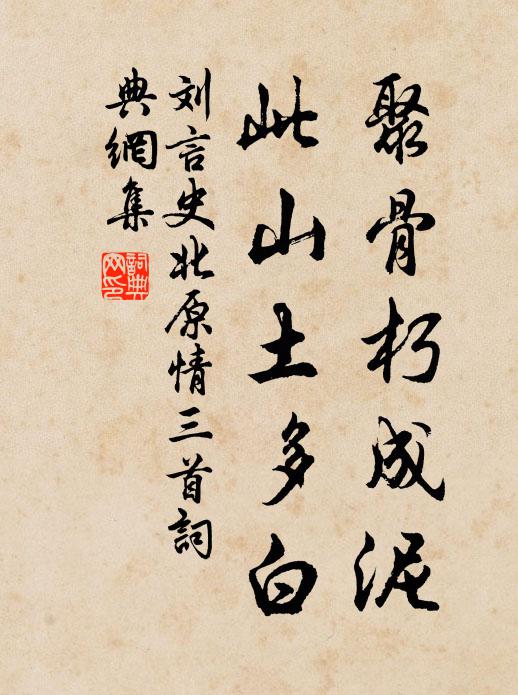 聚骨朽成泥
此山土多白
刘言史北原情三首詞
典網集
詞典网印